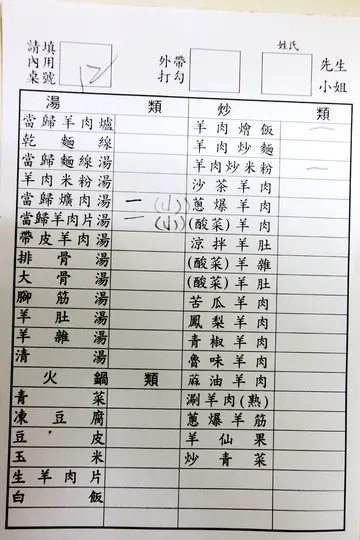 請填
內用
桌號
12
外帶
打勾
姓氏
先生
小姐
湯 類
當歸羊肉爐
乾麵線
當歸麵線湯
羊肉米粉湯
當歸爌肉湯 一 (小)
當歸羊肉片湯 一 (小)
帶皮羊肉湯
排骨湯
大骨湯
腳筋湯
羊肚湯
羊雜湯
清湯
火鍋類
青菜
凍豆腐
豆皮
玉米
生羊肉片
白飯
炒 類
羊肉燴飯 一
羊肉炒麵
羊肉炒米粉 一
沙茶羊肉
蔥爆羊肉
(酸菜)羊肉
涼拌羊肚
(酸菜)羊雜
(酸菜)羊肚
苦瓜羊肉
鳳梨羊肉
青椒羊肉
魯味羊肉
蔴油羊肉
涮羊肉(熟)
蔥爆羊筋
羊仙果
炒青菜